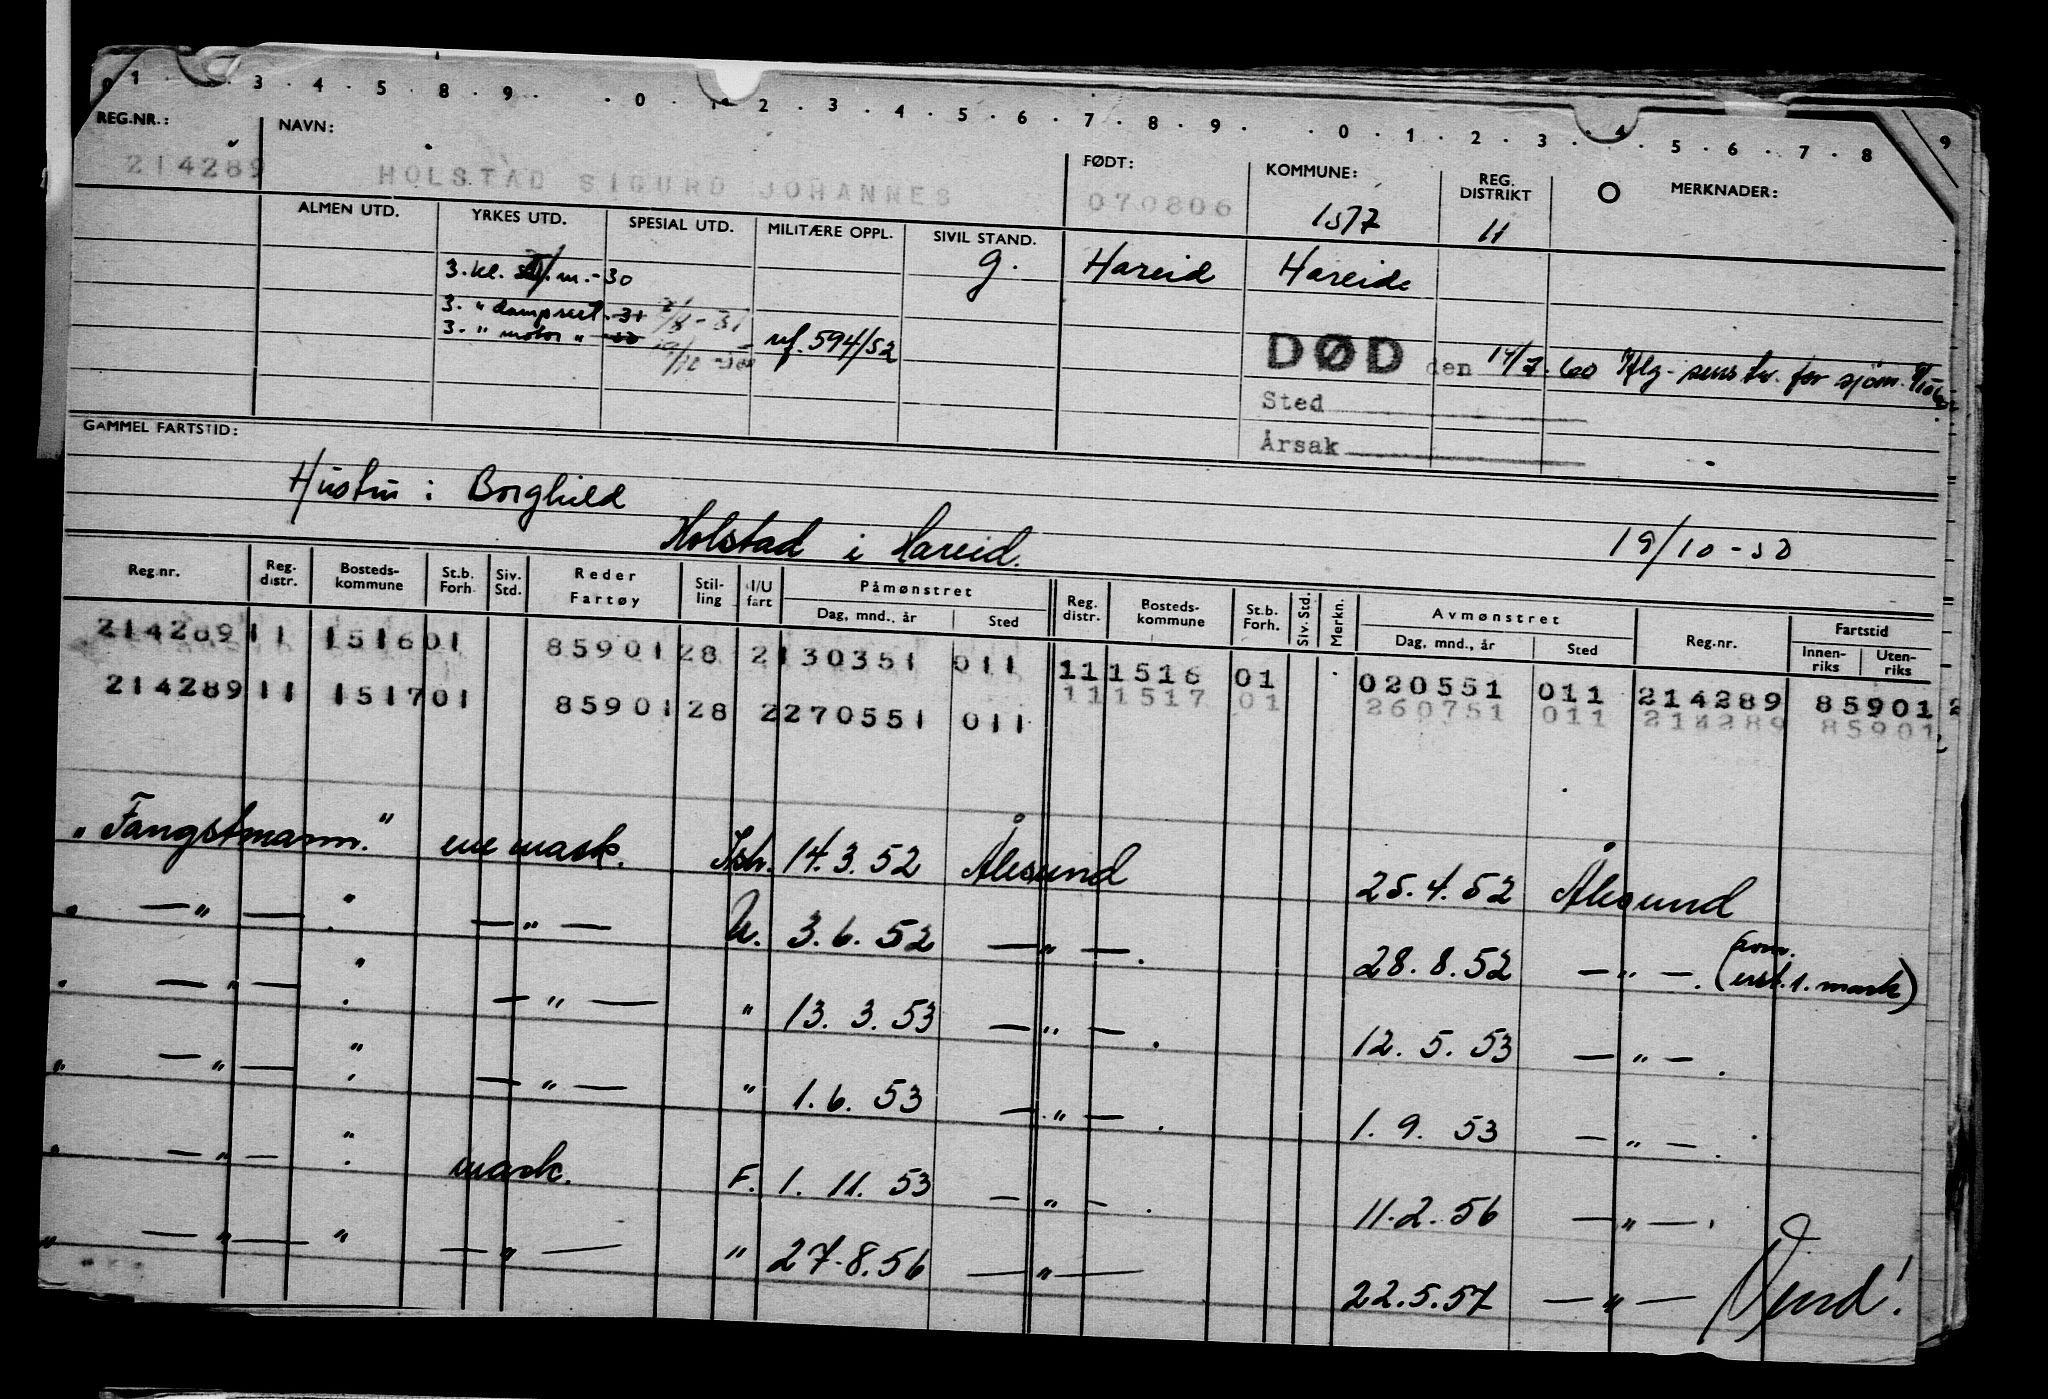 0 1 . . 3 . 4 . 5 . 8 . 9 . . 0 . 1 . 2 . 3 . 4 . 5 . 6 . 7 . 8 . 9 . . 0 . 1 . 2 . 3 . 4 . 5 . 6 . 7 . 8 9
REG.NR.: NAVN: FØDT: KOMMUNE: REG. DISTRIKT MERKNADER:
214289 HOLSTAD SIGURD JOHANNES 070806 1517 11
ALMEN UTD. YRKES UTD. SPESIAL UTD. MILITÆRE OPPL. SIVIL STAND.
g. Hareid Hareid
3. kl. m. - 30
3. " dampsert. 31 - 31
3. " motor " uf. 594/52
DØD den 14/7. 60 for sjøm.
Sted
Årsak
GAMMEL FARTSTID:
Hustru : Borghild
Holstad i Hareid. 19/10 - 50
Reg.nr. Reg. distr. Bosteds- kommune St.b. Forh. Siv. Std. Reder Fartøy Stil- ling I/U fart Påmønstret Dag, mnd., år Sted Reg. distr. Bosteds- kommune St.b. Forh. Siv. Std. Merkn. Avmønstret Dag, mnd., år Sted Reg.nr. Fartstid Innen- riks Uten- riks
214289 11 1516 01 85901 28 2 130351 011 11 1516 01 020551 011 214289 85901 2
214289 11 1517 01 85901 28 2 270551 011 11 1517 01 260751 011 214289 85901
"Fangstmann." ene mask. 14.3.52 Ålesund 25.4.52 Ålesund
" — " — " — " — U. 3.6.52 — " —. 28.8.52 — " —. ( 1. mask)
" — " — " — " — " 13.3.53 — " —. 12.5.53 — " —.
" — " — " — " — " 1.6.53 — " —. 1.9.53 — " —.
" — " — " mask. F. 1.11.53 — " —. 11.2.56 — " —.
" — " — " — " — " 27.8.56 — " — 22.5.57 — " — Vend!